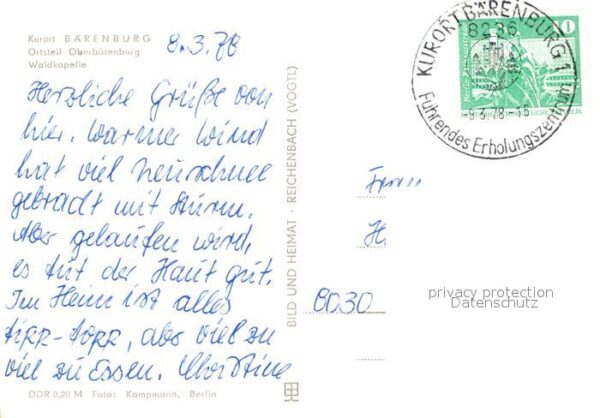 Kurort BÄRENBURG
Ortsteil Oberbärenburg
Waldkapelle
8.3.78
Herzliche Grüße von
hier. Warmer Wind
hat viel Neuschnee
gebracht mit Sturm.
Aber gelaufen wird,
es tut der Haut gut.
Im Heim ist alles
tipp-topp, aber viel zu
viel zu Essen. Christine
DDR 0,20 M Foto: Kampmann, Berlin
BILD UND HEIMAT · REICHENBACH (VOGTL)
KURORT BÄRENBURG 1
8236
-9.3.78-16
Führendes Erholungszentrum
10
H.
8030
privacy protection
Datenschutz